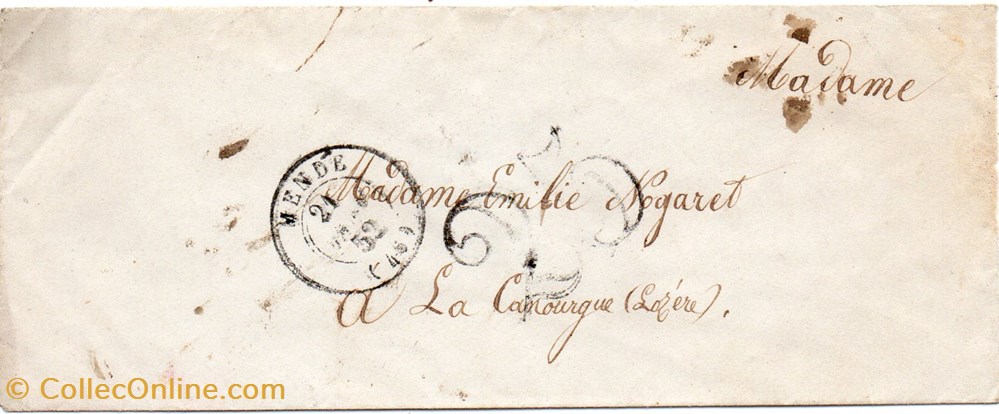 Madame
MENDE
21
52
(46)
Madame Emilie Nogaret
25
A La Canourgue (Lozère).
© CollecOnline.com